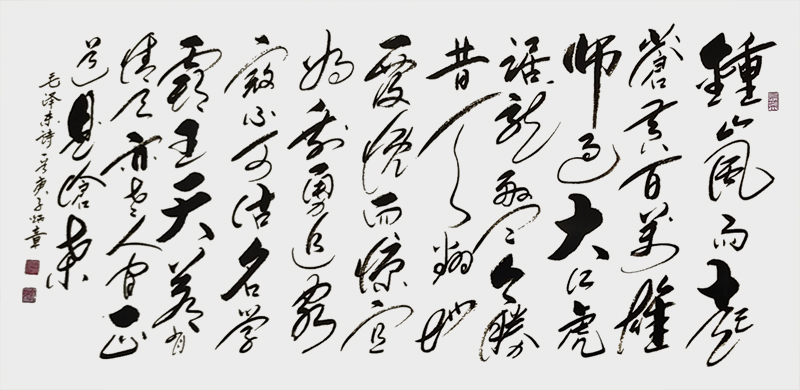 鍾山風雨起
蒼黄百万雄
师过大江虎
踞龙盘今勝
昔天翻地
覆慨而慷宜
将剩勇追穷
寇不可沽名学
霸王天若有
情天亦老人间正
道是滄桑
毛泽东诗一首庚子炳章